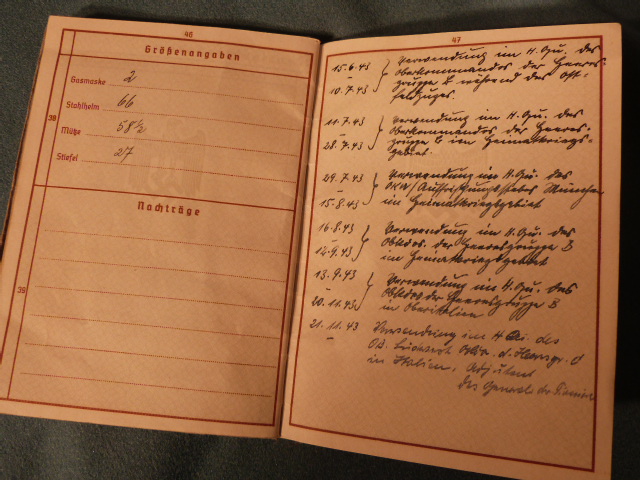 46
Größenangaben
38
Gasmaske 2
Stahlhelm 66
Mütze 58½
Stiefel 27
Nachträge
39
47
15.6.43 – 10.7.43 } Verwendung im H.Qu. des
Oberkommandos der Heeres-
gruppe B während des Ost-
feldzuges.
11.7.43 – 28.7.43 } Verwendung im H.Qu. des
Oberkommandos der Heeres-
gruppe B im Heimatkriegs-
gebiet.
29.7.43 – 15.8.43 } Verwendung im H.Qu. des
OKW/Auffrischungsstabes München
im Heimatkriegsgebiet
16.8.43 – 12.9.43 } Verwendung im H.Qu. des
Obkdos. der Heeresgruppe B
im Heimatkriegsgebiet
13.9.43 – 20.11.43 } Verwendung im H.Qu. des
Obkdos der Heeresgruppe B
in Oberitalien
21.11.43 – Verwendung im H Qu. des
OB. Südwest d. Heeresgr. C
in Italien, Adjutant
des Generals der Pioniere